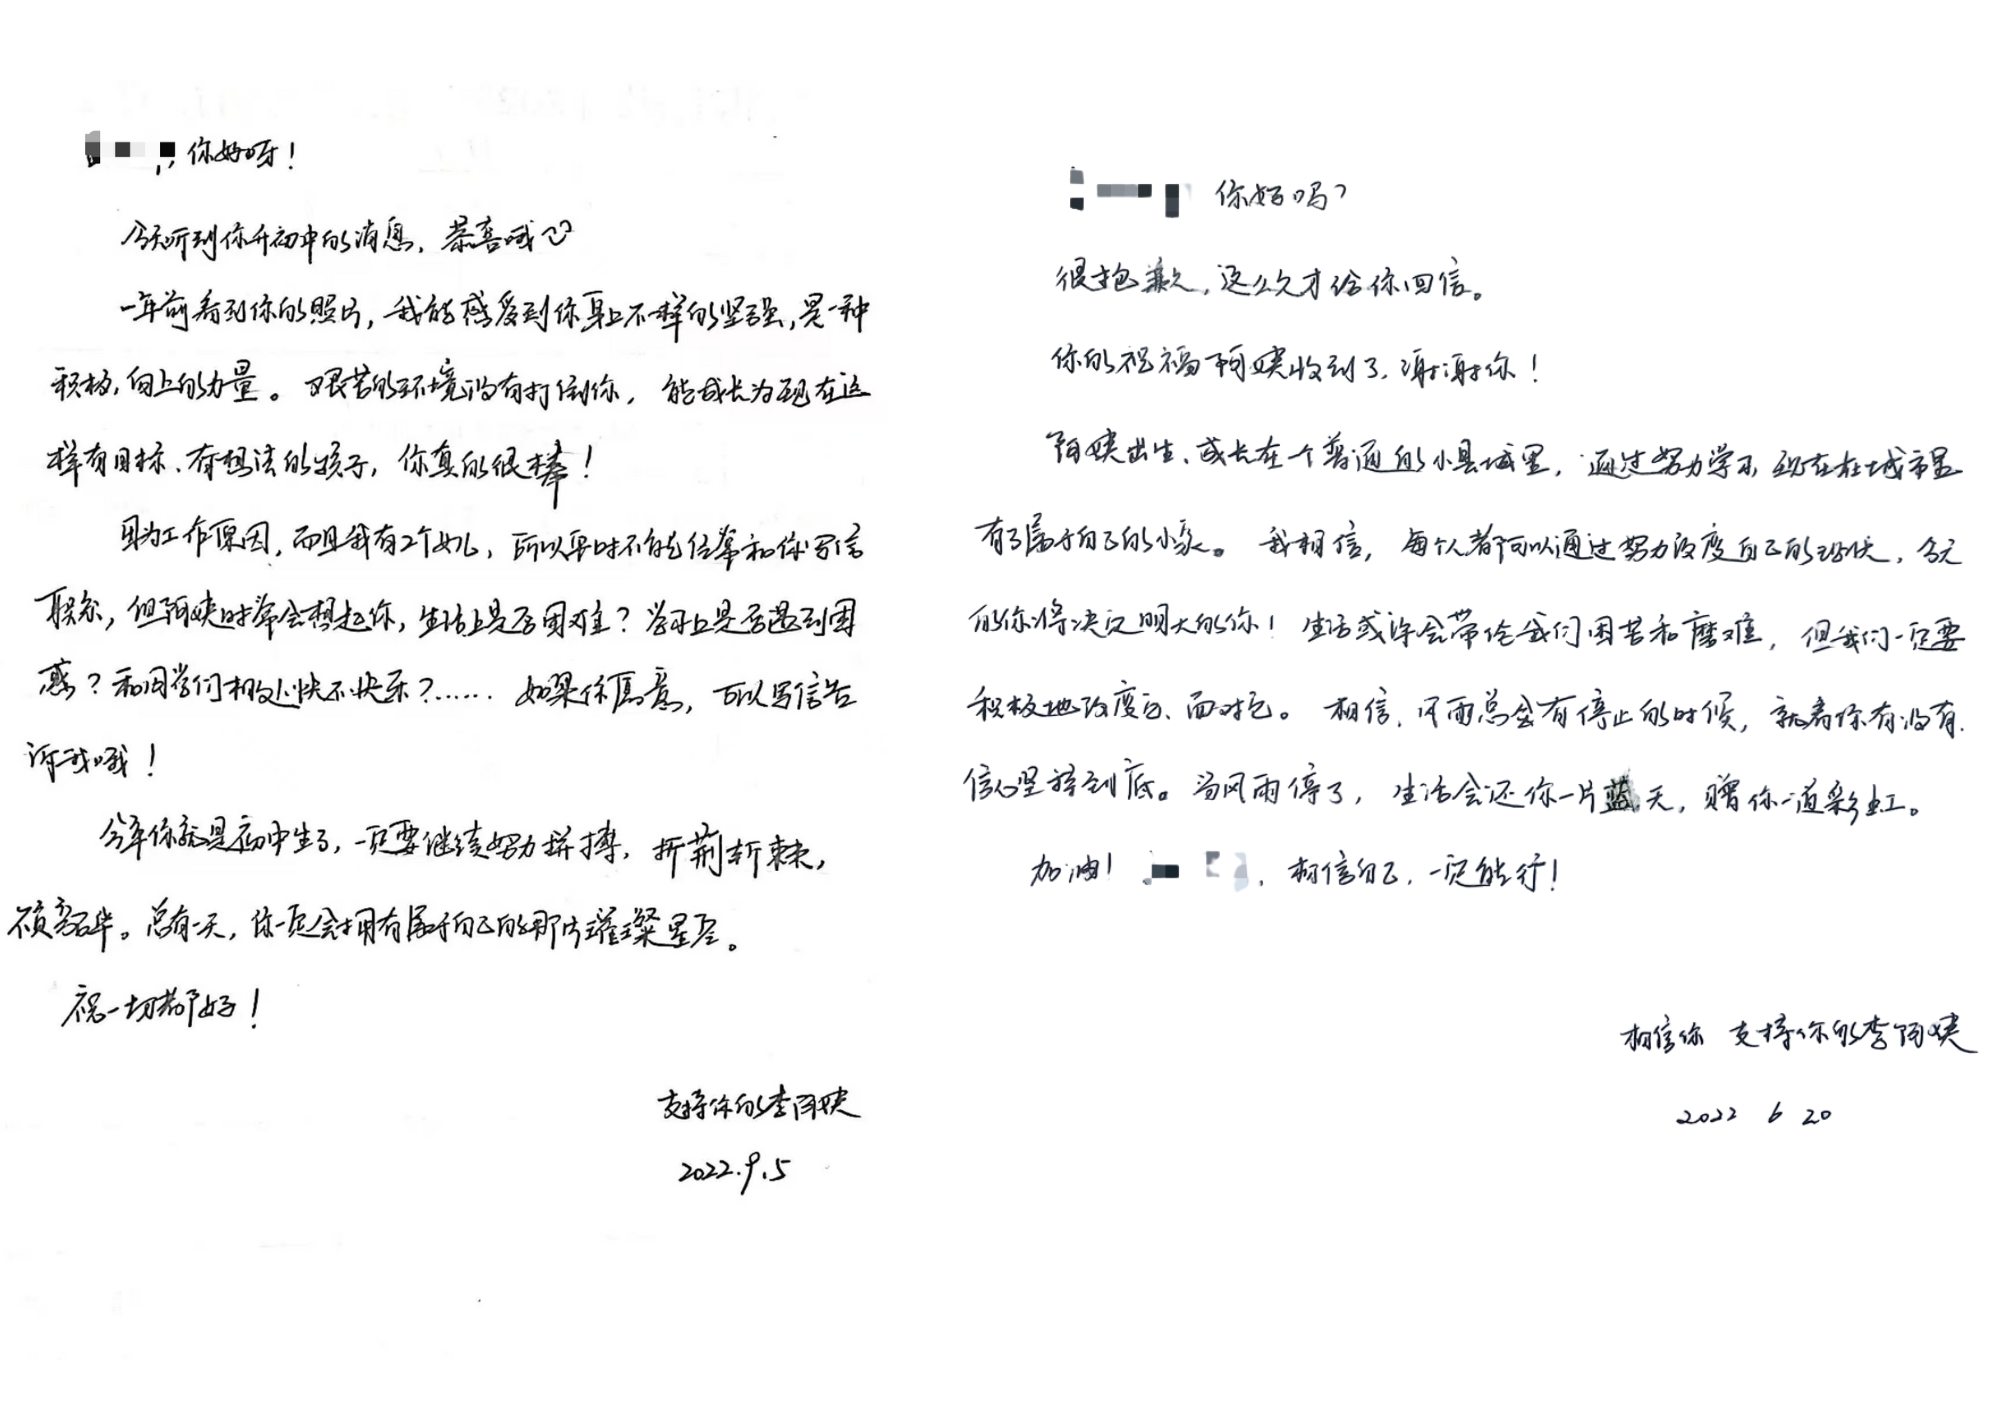 ，你好呀！
今天听到你升初中的消息，恭喜哦
一年前看到你的照片，我能感受到你身上不一样的坚强，是一种
积极，向上的力量。艰苦的环境没有打倒你，能成长为现在这
样有目标、有想法的孩子，你真的很棒！
因为工作原因，而且我有2个女儿，所以平时不能经常和你写信
联系，但阿姨时常会想起你，生活上是否困难？学习上是否遇到困
惑？和同学们相处快不快乐？…… 如果你愿意，可以写信告
诉我哦！
今年你就是初中生了，一定要继续努力拼搏，折荆斩棘，
不负韶华。总有一天，你一定会拥有属于自己的那片璀璨星空。
祝一切都好！
支持你的李阿姨
2022.9.5
你好吗？
很抱歉，这么久才给你回信。
你的祝福阿姨收到了，谢谢你！
阿姨出生、成长在一个普通的小县城里，通过努力学习，现在在城市里
有了属于自己的小家。我相信，每个人都可以通过努力改变自己的现状，今天
的你将决定明天的你！生活或许会带给我们困苦和磨难，但我们一定要
积极地改变它、面对它。相信，风雨总会有停止的时候，就看你有没有
信心坚持到底。当风雨停了，生活会还你一片蓝天，赠你一道彩虹。
加油！，相信自己，一定能行！
相信你 支持你的李阿姨
2022 6 20